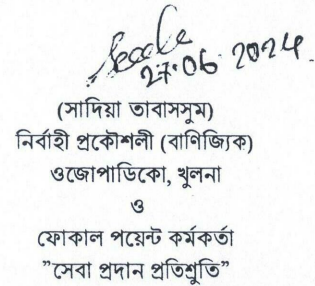 27.06.2024
(সাদিয়া তাবাসসুম)
নির্বাহী প্রকৌশলী (বাণিজ্যিক)
ওজোপাডিকো, খুলনা
ও
ফোকাল পয়েন্ট কর্মকর্তা
”সেবা প্রদান প্রতিশ্রুতি”